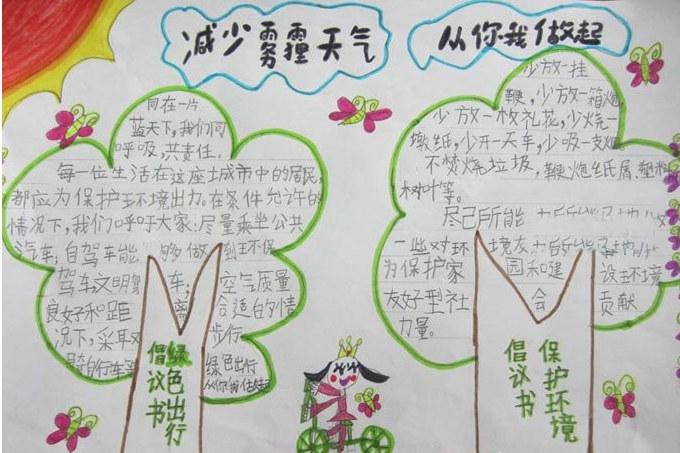 减少雾霾天气
从你我做起
同在一片
蓝天下,我们同
呼吸,共责任。
每一位生活在这座城市中的居民,
都应为保护环境出力。在条件允许的
情况下,我们呼吁大家:尽量乘坐公共
汽车;自驾车能够做到环保
驾车文明 车;空气质量
良好和距离合适的情
况下,采取 步行
骑自行车等绿色出行
从你我做起
倡议书
绿色出行
少放一挂
鞭,少放一箱炮,
少放一枚礼花,少烧一
墩纸,少开一天车,少吸一支烟
不焚烧垃圾,鞭炮纸屑,塑料
树叶等。
尽己所能
一些对环境友
为保护家园和建设环境
友好型社会贡献
力量。
倡议书
保护环境